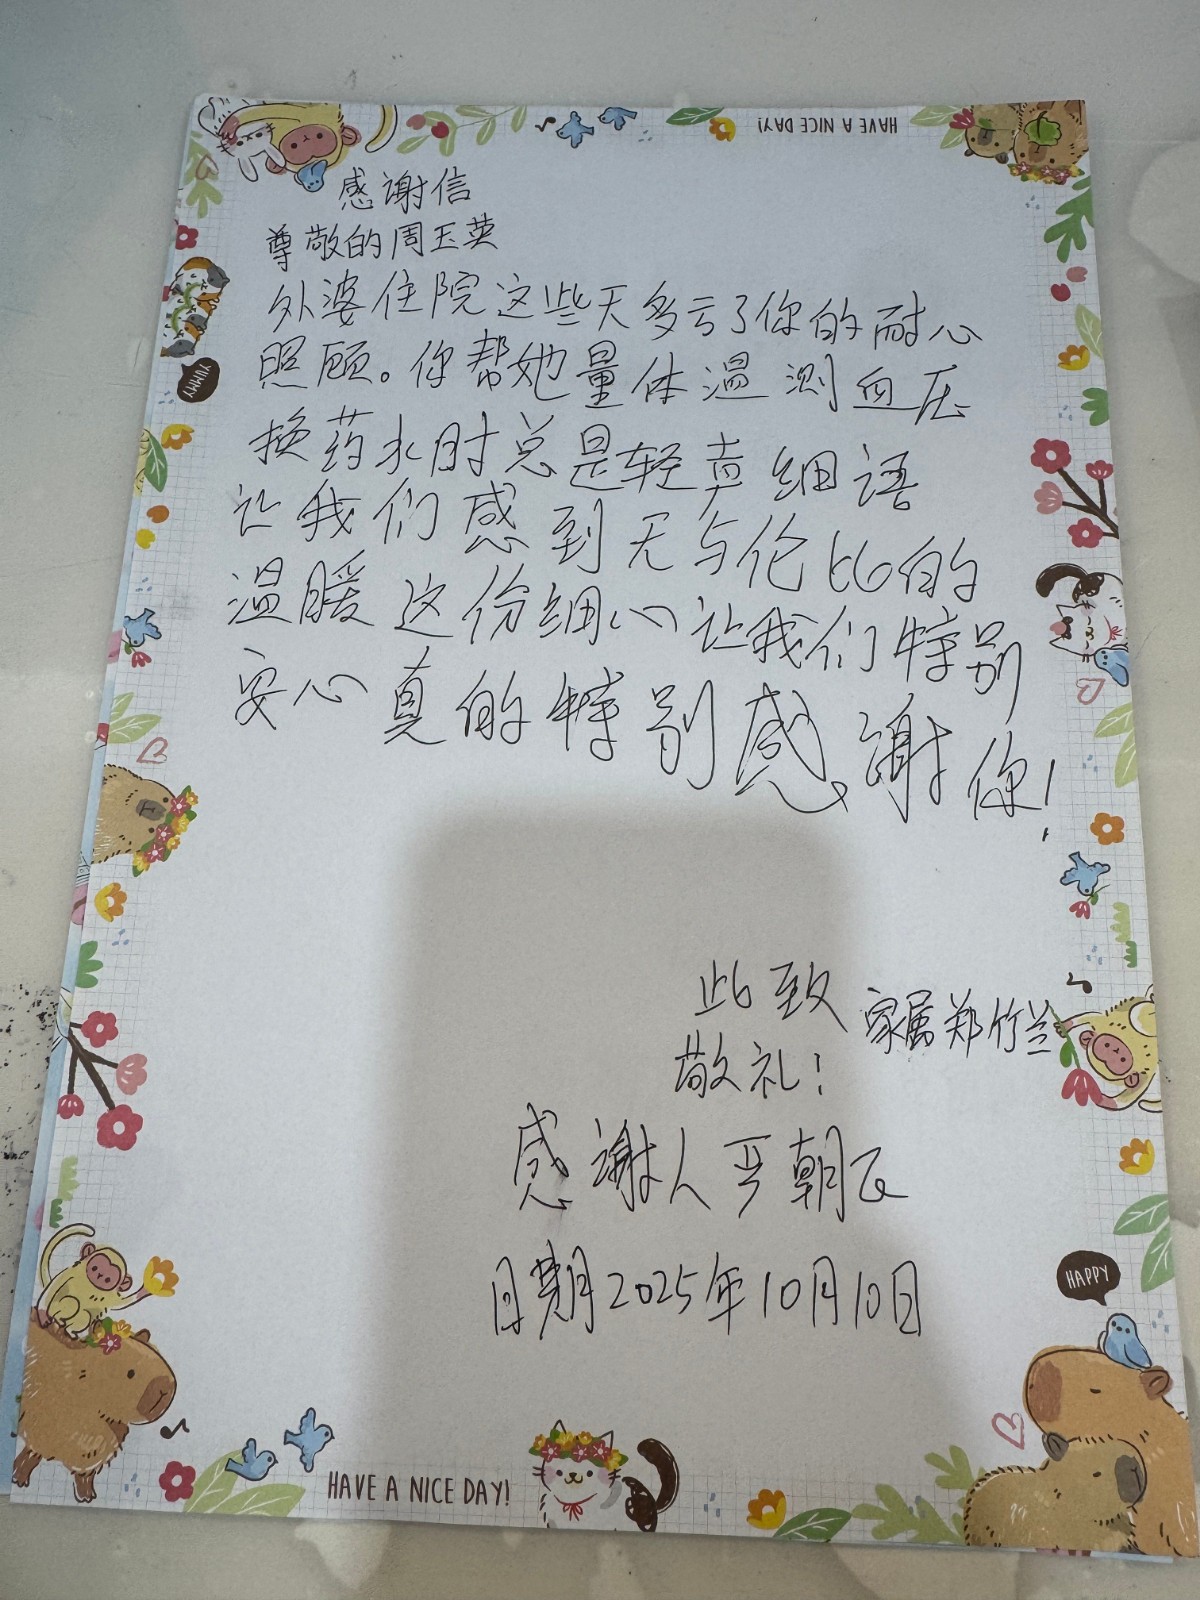 HAVE A NICE DAY!
感谢信
尊敬的周玉英
外婆住院这些天多亏了你的耐心
照顾。你帮她量体温测血压
换药水时总是轻声细语
让我们感到无与伦比的
温暖这份细心让我们特别
安心真的特别感谢你!
YUMMY
此致
家属郑竹兰
敬礼!
感谢人严朝
日期2025年10月10日
HAPPY
HAVE A NICE DAY!